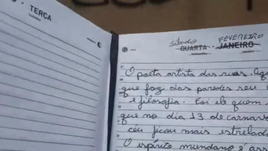 TERÇA
sábado FEVEREIRO
QUARTA JANEIRO
"O poeta artista das ruas,
que faz das paredes seu
e filosofia. Foi ele quem
que no dia 13 de carnav
céu ficou mais estrelad
O espírito mundano e